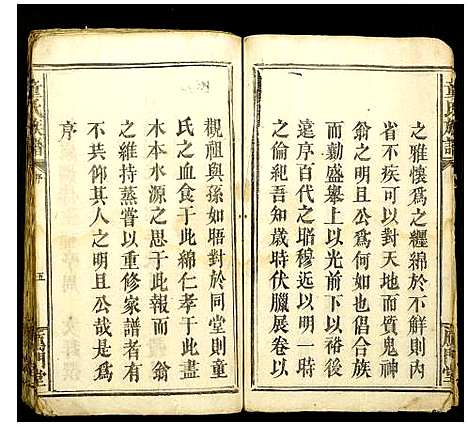 童氏族譜
序
鴈門堂
之雅懷爲之纒綿於不觧則内
省不疾可以對天地而質鬼神
翁之明且公爲何如也倡合族
而勷盛舉上以光前下以裕後
遠序百代之昭穆近以明一時
之倫紀吾知歲時伏臘展卷以
觀祖與孫如晤對於同堂則童
氏之血食于此綿仁孝于此盡
水本水源之思于此報而 翁
之維持蒸嘗以重修家譜者有
不共仰其人之明且公哉是爲
序
童氏族譜
序
五
鴈門堂